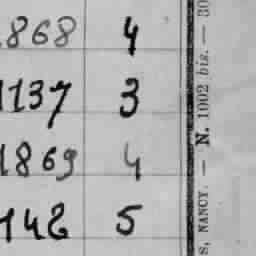 868 4
1137 3
1869 4
142 5
S, NANCY. — N. 1002 bis. — 30